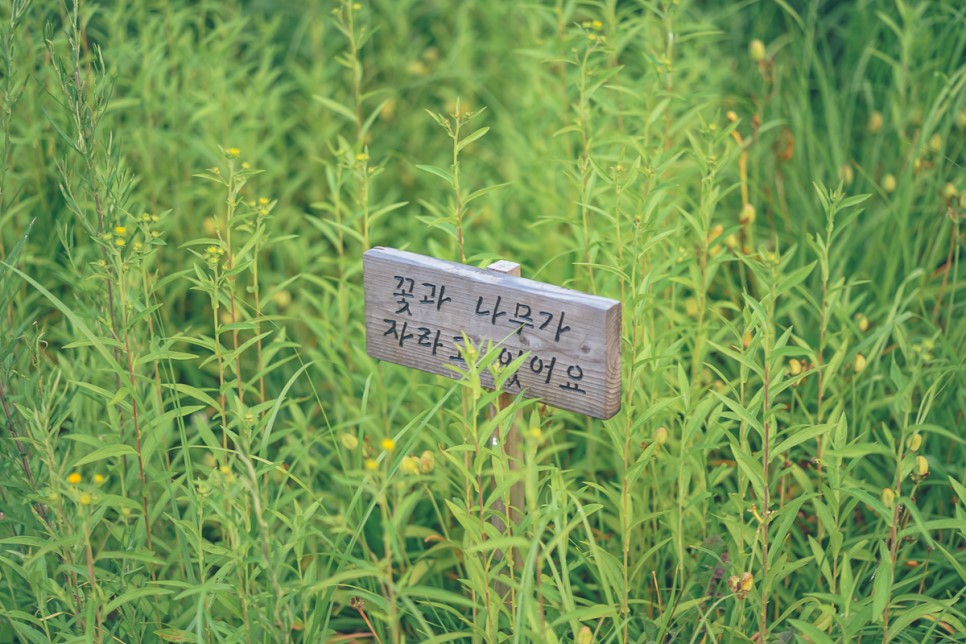 꽃과 나무가
자라고 있어요